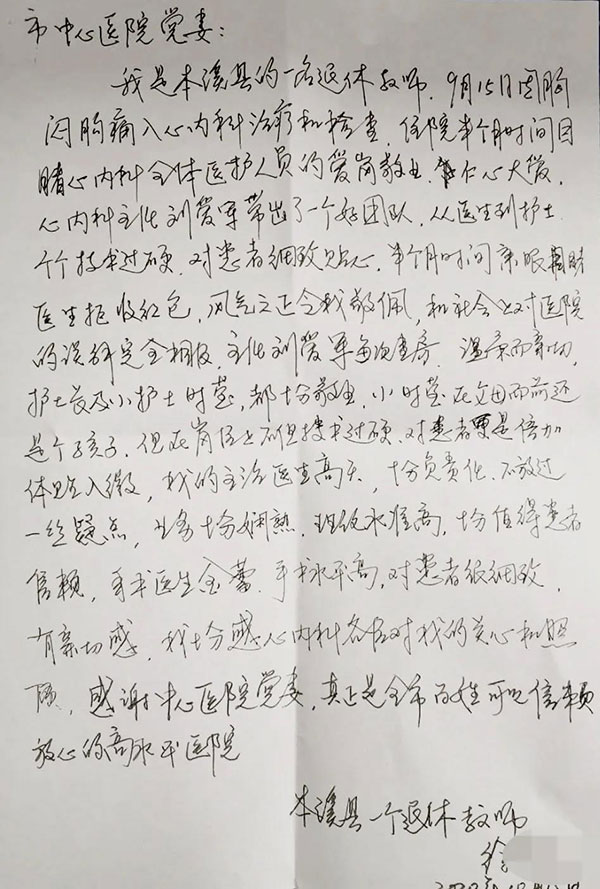 市中心医院党委:
我是本溪县的一名退休教师,9月15日因胸
闷胸痛入心内科治疗和检查,住院半个月时间目
睹心内科全体医护人员的爱岗敬业,仁心大爱,
心内科主任刘爱军带出了一个好团队,从医生到护士
个个技术过硬,对患者细致贴心,半个月时间亲眼目睹
医生拒收红包,风气之正令我敬佩,和社会上对医院
的误解完全相反,主任刘爱军每次查房,温柔而亲切,
护士长及小护士时莹,都十分敬业,小时莹在父母面前还
是个孩子,但在岗位上不但技术过硬,对患者更是倍加
体贴入微,我的主治医生高乐,十分负责任,不放过
一丝疑点,业务十分娴熟,理论水准高,十分值得患者
信赖,手术医生金蕾,手术水平高,对患者很细致,
有亲切感,我十分感心内科各位对我的关心和照
顾,感谢中心医院党委,真正是全市百姓可以信赖
放心的高水平医院
本溪县一个退休教师